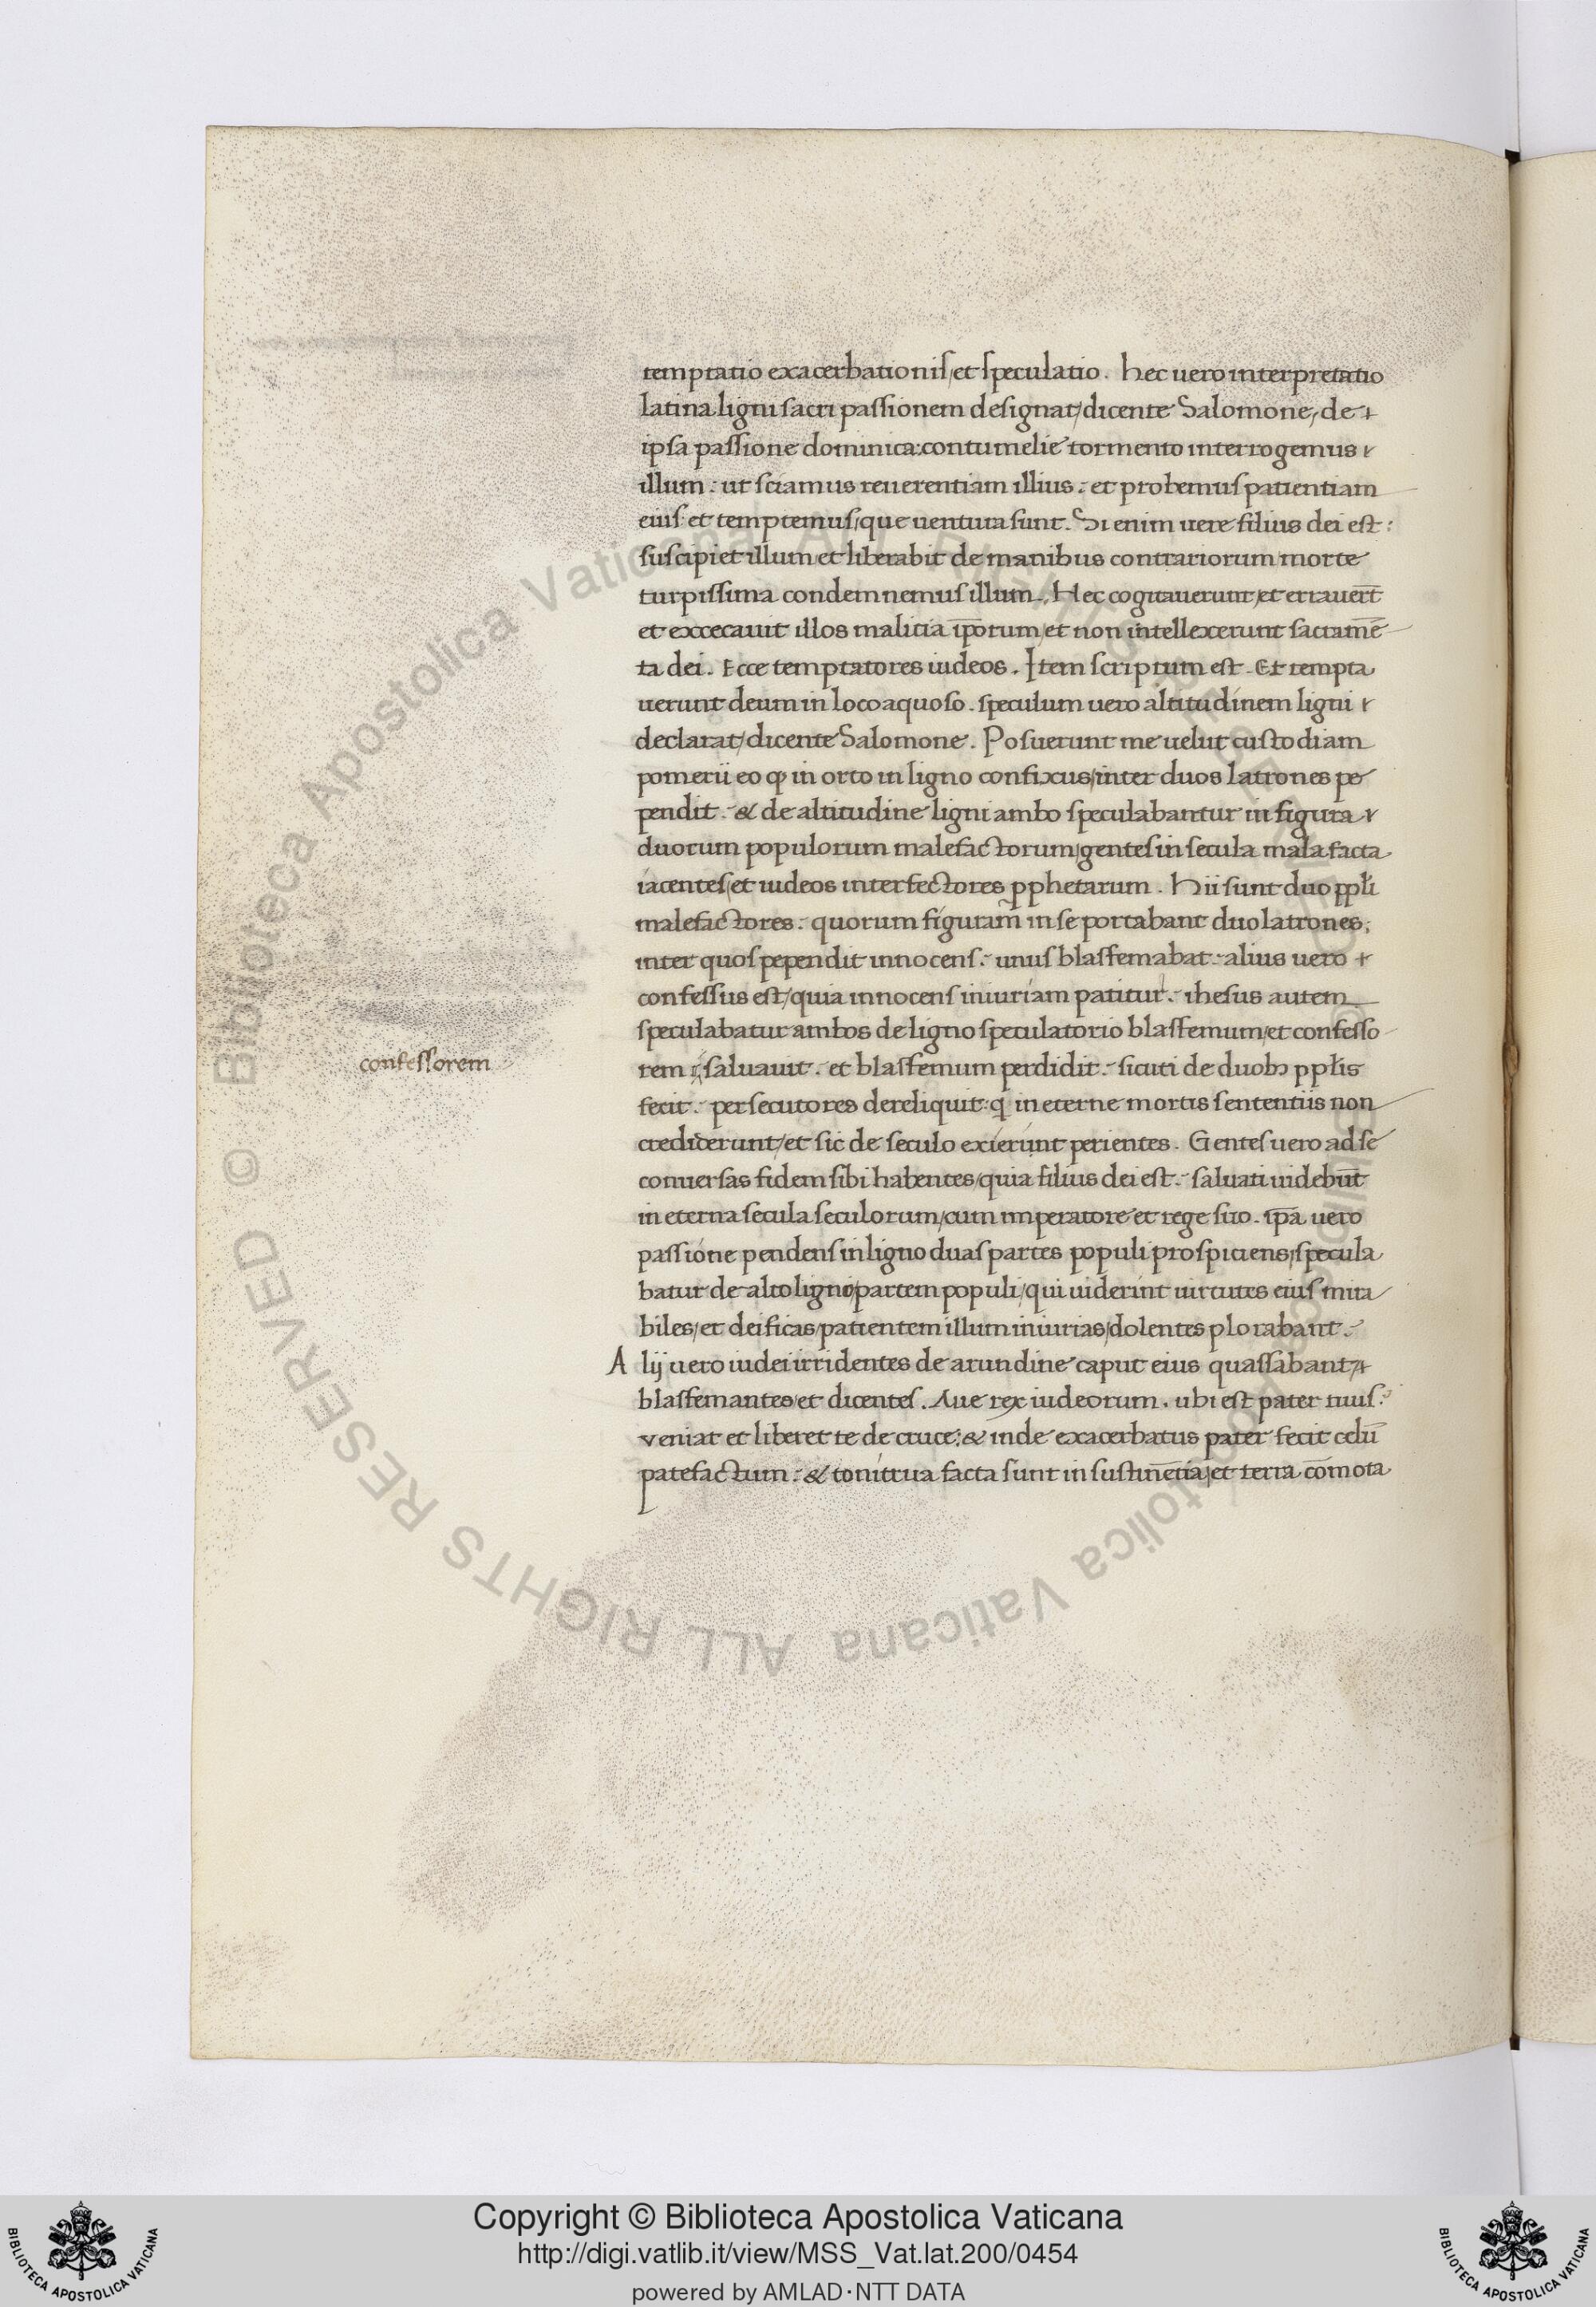 temptatio exacerbationis/et speculatio. hec uero interpretatio
latina ligni sacri passionem designat/dicente Salomone, de
ipsa passione dominica:contumelie tormento interrogemus
illum. ut sciamus reuerentiam illius. et probemus patientiam
eius: et temptemus/que uentura sunt. Si enim uere filius dei est:
suscipiet illum/et liberabit de manibus contrariorum/morte
turpissima condemnemus illum. Hec cogitauerunt/et errauer̄t
et excecauit illos malicia ip̄orum/et non intellexerunt sacramē
ta dei. Ecce temptatores iudeos. Item scriptum est. Et tempta
uerunt deum in loco aquoso. speculum uero altitudinem ligni
declarat/dicente Salomone. Posuerunt me uelut custodiam
pomerii eo ꝙ in orto in ligno confixus/inter duos latrones pe
pendit. & de altitudine ligni ambo speculabantur in figura
duorum populorum malefactorum/gentes in secula mala facta
iacentes/et iudeos interfectores ꝓphetarum. Hii sunt duo ppłi
malefactores. quorum figuram in se portabant duo latrones,
inter quos pependit innocens. unus blasfemabat. alius uero
confessus est/quia innocens iniuriam patitur. ihesus autem
speculabatur ambos de ligno speculatorio blasfemum/et confesso
rem saluauit. et blasfemum perdidit. sicuti de duobꝫ ppłis
confessorem
fecit. persecutores dereliquit:q̨ in eterne mortis sententiis non
crediderunt/et sic de seculo exierunt perientes. Gentes uero ad se
conuersas fidem sibi habentes/quia filius dei est. saluati uidebūt
in eterna secula seculorum/cum imperatore et rege suo. ip̄a uero
passione pendens in ligno duas partes populi prospiciens/specula
batur de alto ligno/partem populi/qui uiderint uirtutes eius mira
biles/et deificas/patientem illum iniurias/dolentes plorabant.
Alij uero iudei irridentes de arundine caput eius quassabant
blasfemantes/et dicentes. Aue rex iudeorum. ubi est pater tuus.
veniat et liberet te de cruce:& inde exacerbatus pater fecit celū
patefactum. & tonitrua facta sunt in sustinētia/et terra cōmota
© Biblioteca Apostolica Vaticana ALL RIGHTS RESERVED
Copyright © Biblioteca Apostolica Vaticana
http://digi.vatlib.it/view/MSS_Vat.lat.200/0454
powered by AMLAD·NTT DATA
BIBLIOTECA APOSTOLICA VATICANA
BIBLIOTECA APOSTOLICA VATICANA